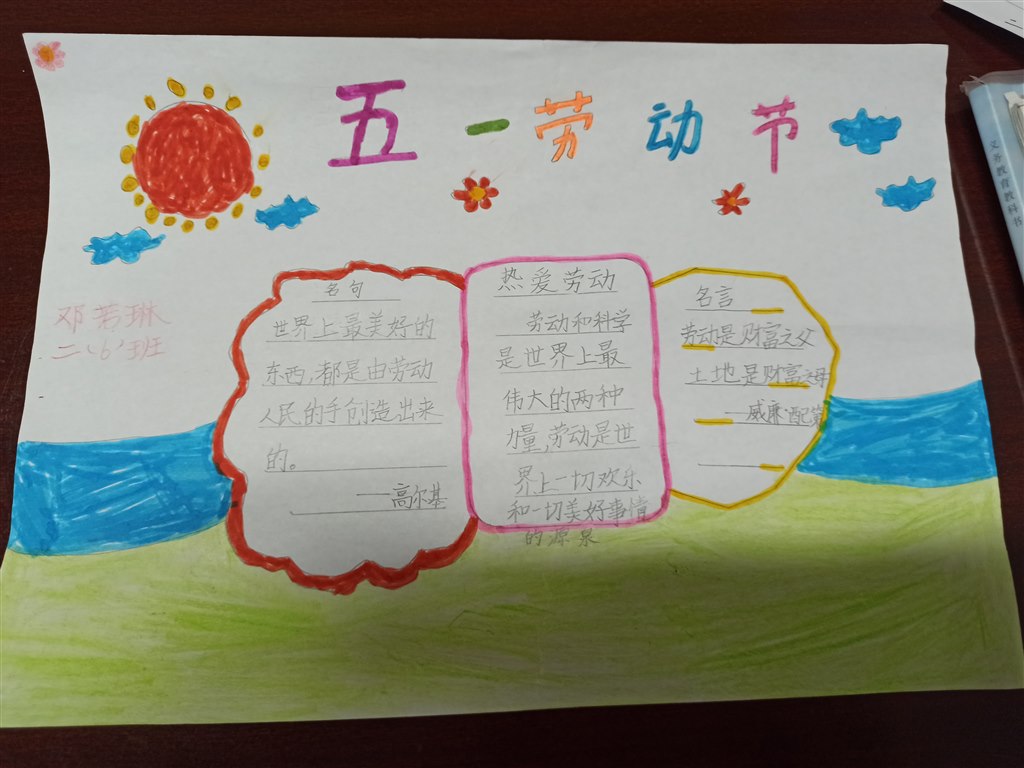 五一劳动节
邓若琳
二(6)班
名句
世界上最美好的
东西,都是由劳动
人民的手创造出来
的。
——高尔基
热爱劳动
劳动和科学
是世界上最
伟大的两种
力量,劳动是世
界上一切欢乐
和一切美好事情
的源泉
名言
劳动是财富之父
土地是财富之母
—威廉·配第
义务教育教科书